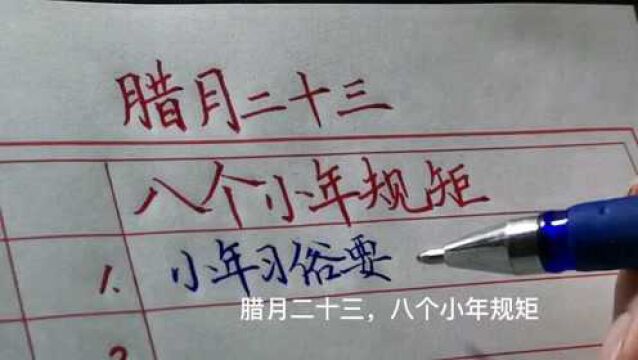 腊月二十三
八个小年规矩
1. 小年习俗要
腊月二十三，八个小年规矩